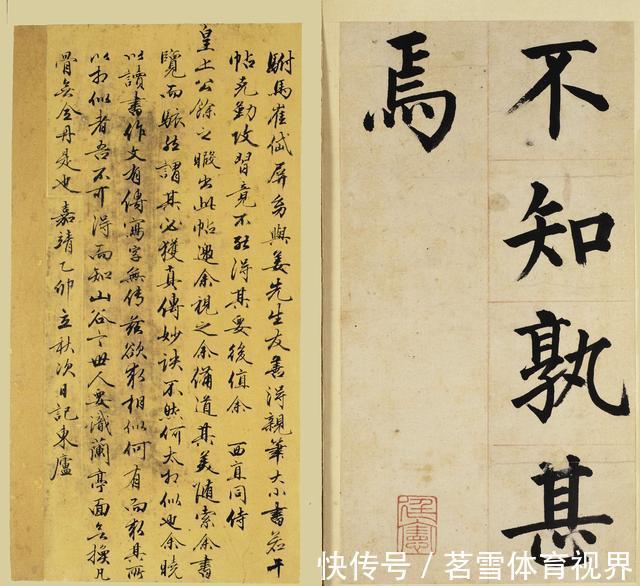 不知孰其
焉
駙馬崔岱屏翁與姜先生友善得親筆大小書若干
帖克勤攻習竟不能得其要後值余 西直同侍
皇上公餘之暇出此帖邀余視之余備道其美随索余書
覽而駭然謂某必獲真傳妙訣不然何太相似也余曉
以讀書作文有傳寫字無傳兹欲求相似何有而求其所
以相似者吾不可得而知山谷云世人要識蘭亭面無換凡
骨無金丹是也嘉靖乙卯立秋次日記東廬
快传号 / 茗雪体育视界